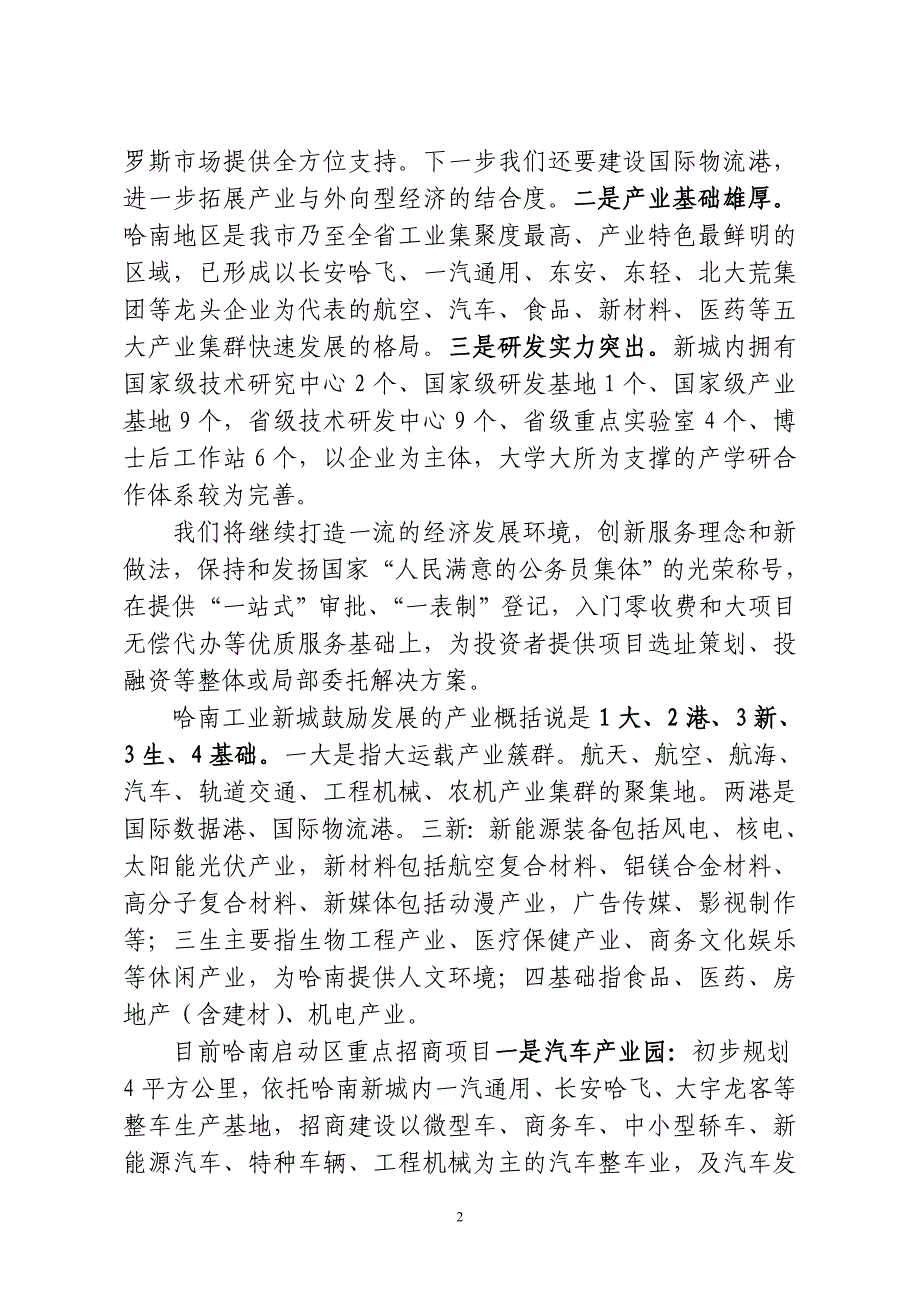 罗斯市场提供全方位支持。下一步我们还要建设国际物流港，
进一步拓展产业与外向型经济的结合度。二是产业基础雄厚。
哈南地区是我市乃至全省工业集聚度最高、产业特色最鲜明的
区域，已形成以长安哈飞、一汽通用、东安、东轻、北大荒集
团等龙头企业为代表的航空、汽车、食品、新材料、医药等五
大产业集群快速发展的格局。三是研发实力突出。新城内拥有
国家级技术研究中心 2 个、国家级研发基地 1 个、国家级产业
基地 9 个，省级技术研发中心 9 个、省级重点实验室 4 个、博
士后工作站 6 个，以企业为主体，大学大所为支撑的产学研合
作体系较为完善。
我们将继续打造一流的经济发展环境，创新服务理念和新
做法，保持和发扬国家“人民满意的公务员集体”的光荣称号，
在提供“一站式”审批、“一表制”登记，入门零收费和大项目
无偿代办等优质服务基础上，为投资者提供项目选址策划、投
融资等整体或局部委托解决方案。
哈南工业新城鼓励发展的产业概括说是 1 大、2 港、3 新、
3 生、4 基础。一大是指大运载产业簇群。航天、航空、航海、
汽车、轨道交通、工程机械、农机产业集群的聚集地。两港是
国际数据港、国际物流港。三新：新能源装备包括风电、核电、
太阳能光伏产业，新材料包括航空复合材料、铝镁合金材料、
高分子复合材料、新媒体包括动漫产业，广告传媒、影视制作
等；三生主要指生物工程产业、医疗保健产业、商务文化娱乐
等休闲产业，为哈南提供人文环境；四基础指食品、医药、房
地产（含建材）、机电产业。
目前哈南启动区重点招商项目一是汽车产业园：初步规划
4 平方公里，依托哈南新城内一汽通用、长安哈飞、大宇龙客等
整车生产基地，招商建设以微型车、商务车、中小型轿车、新
能源汽车、特种车辆、工程机械为主的汽车整车业，及汽车发
2